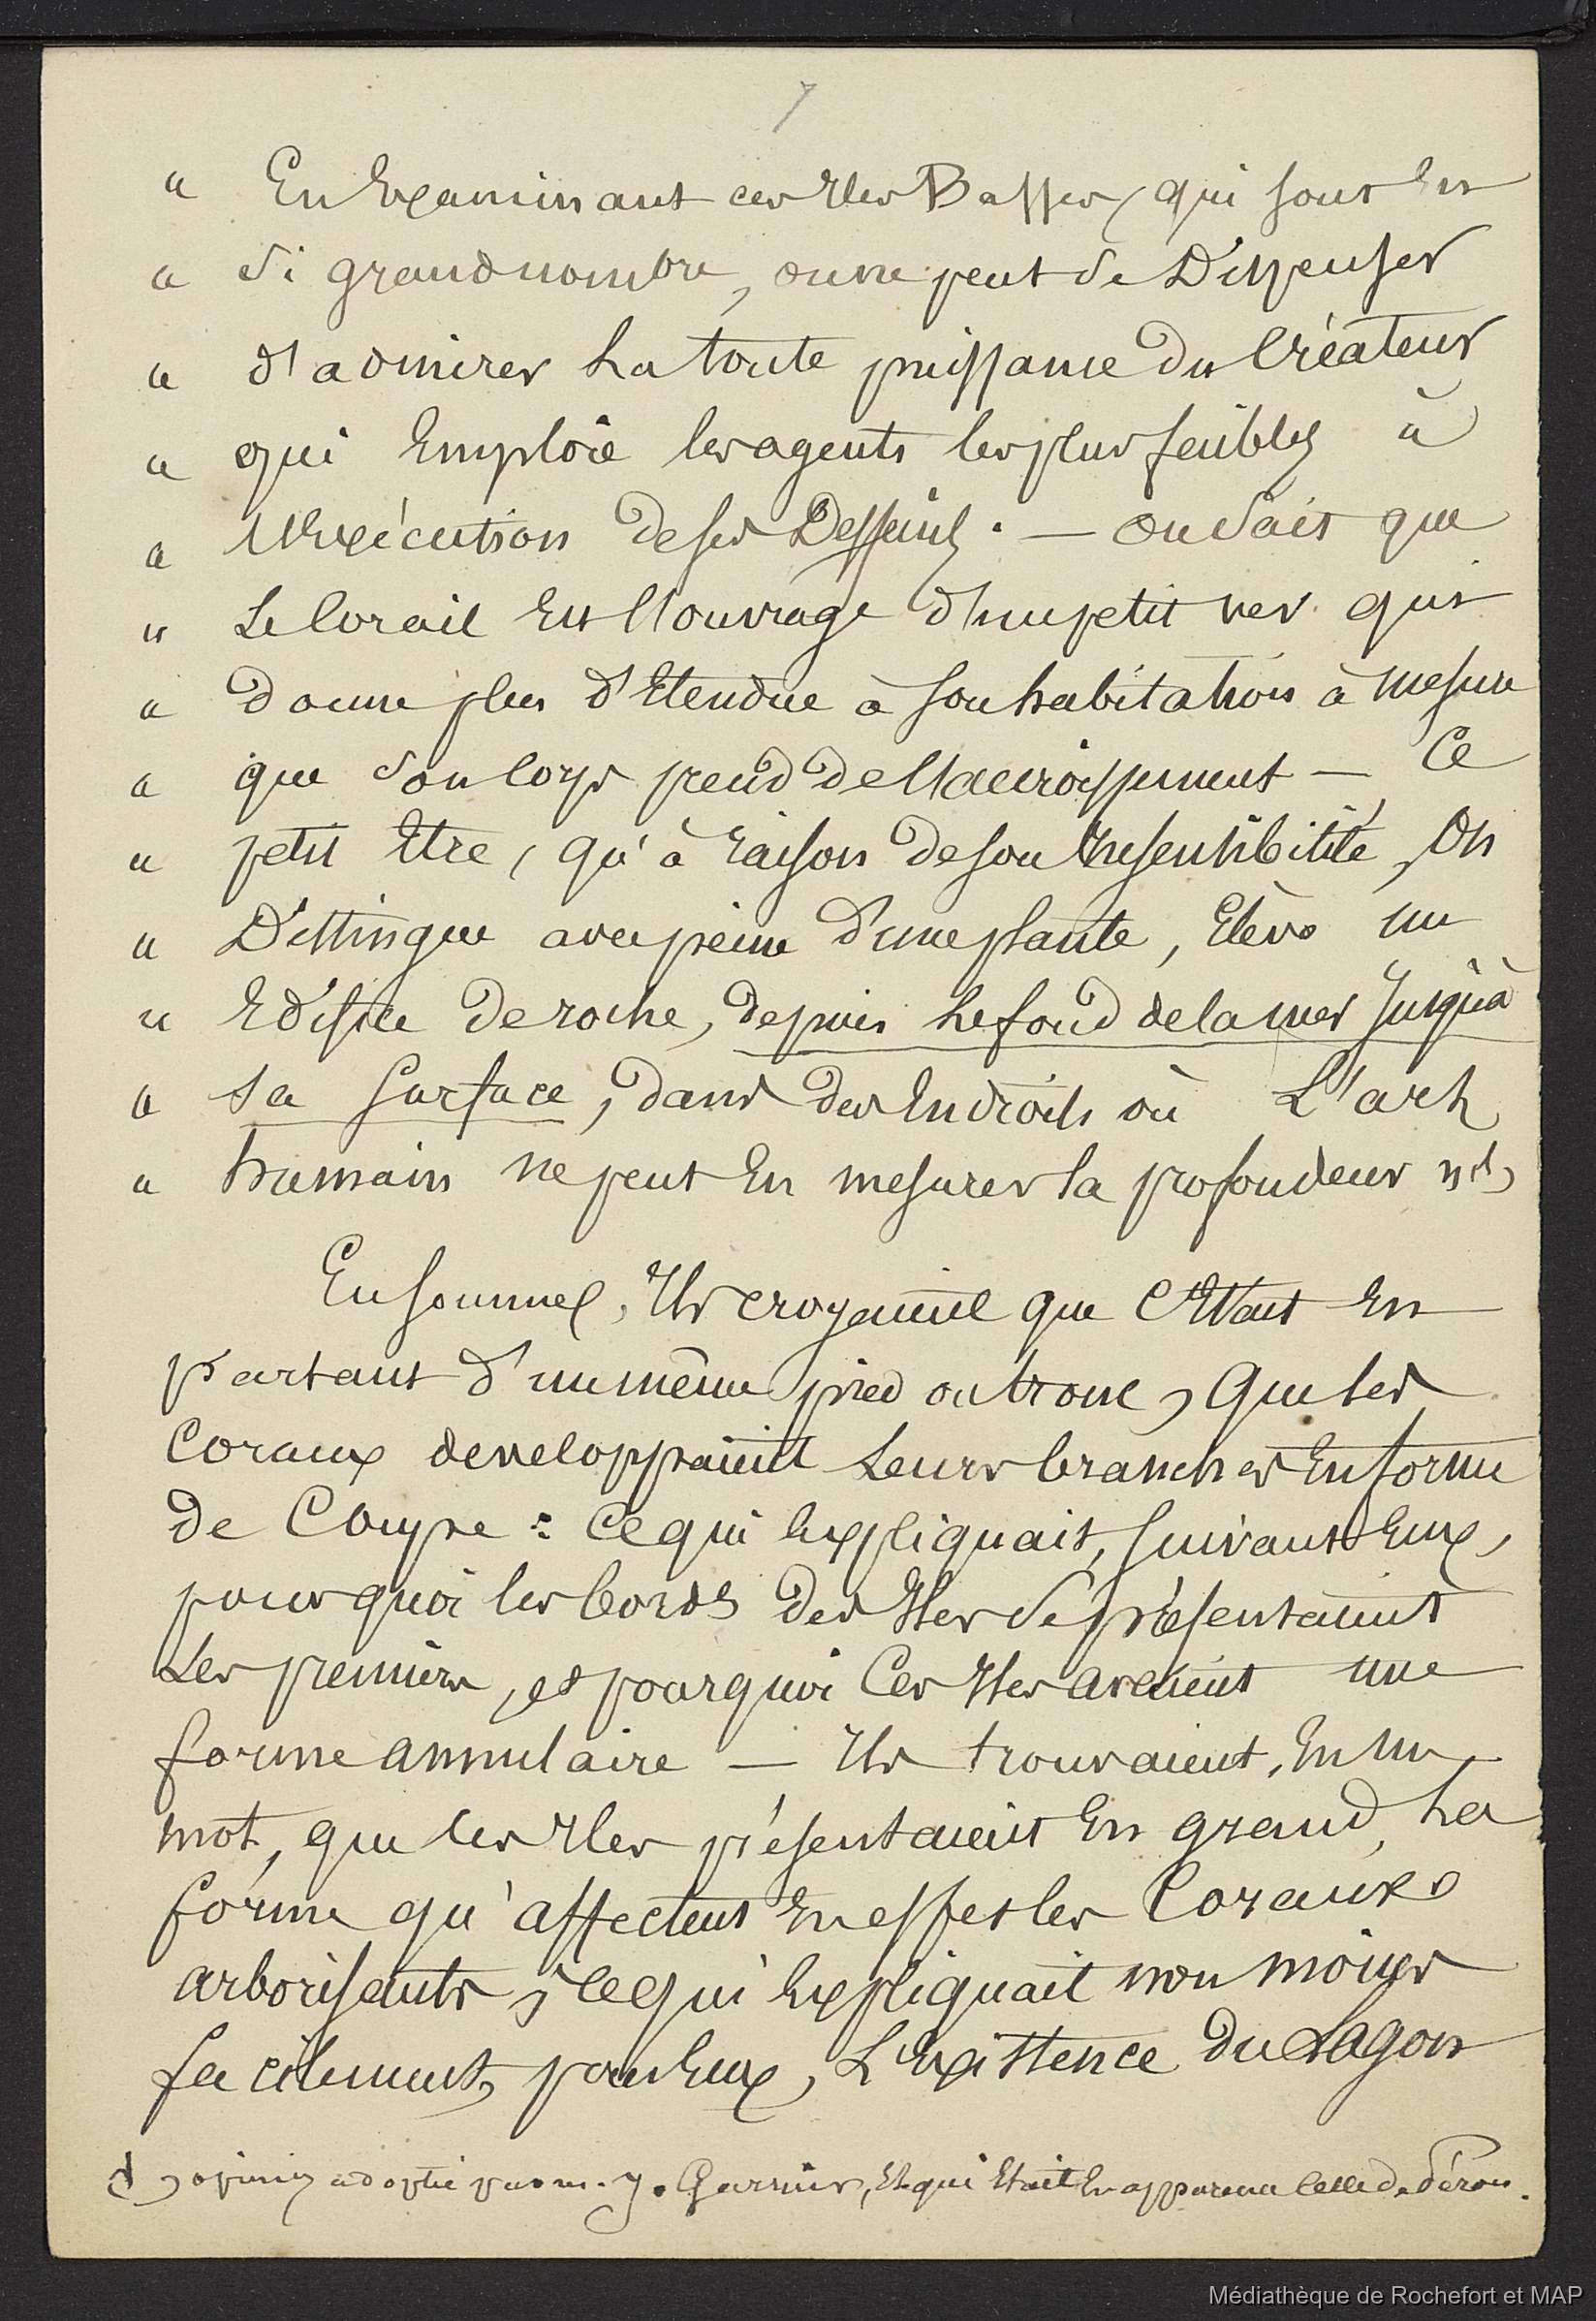 7
" En Examinant ces Iles Basses, qui sont En
" si grand nombre, on ne peut se Dispenser
" d'admirer La toute puissance Du Créateur
" qui Emploie les agents les plus faibles à
" l'Exécution de ses Desseins. — on sait que
" Le Corail Est l'ouvrage d'un petit ver qui
" donne plus d'Etendue à son habitation à mesure
" que son Corps prend de l'accroissement — Ce
" petit Etre, qu'à raison de son Insensibilité, On
" Distingue avec peine d'une plante, Elève un
" Edifice de roche, depuis Le fond de la mer Jusqu'à
" sa surface, dans des Endroits où L'art
" humain ne peut En mesurer la profondeur " d)
En somme, Ils croyaient que c'Etait En
partant d'un même pied ou tronc, que les
Coraux developpaient Leurs branches En forme
de Coupe : Ce qui Expliquait, suivant Eux,
pourquoi les bords des Iles se présentaient
Les premiers, et pourquoi Ces Iles avaient une
forme annulaire — Ils trouvaient, En un
mot, que les Iles présentaient En grand, La
forme qu'affectent En effet les Coraux
arborisants, Ce qui Expliquait non moins
facilement, pour Eux, L'Existence du Lagon
d) opinion adoptée par m. J. Garnier, Et qui Etait En apparence Celle de Péron.
Médiathèque de Rochefort et MAP